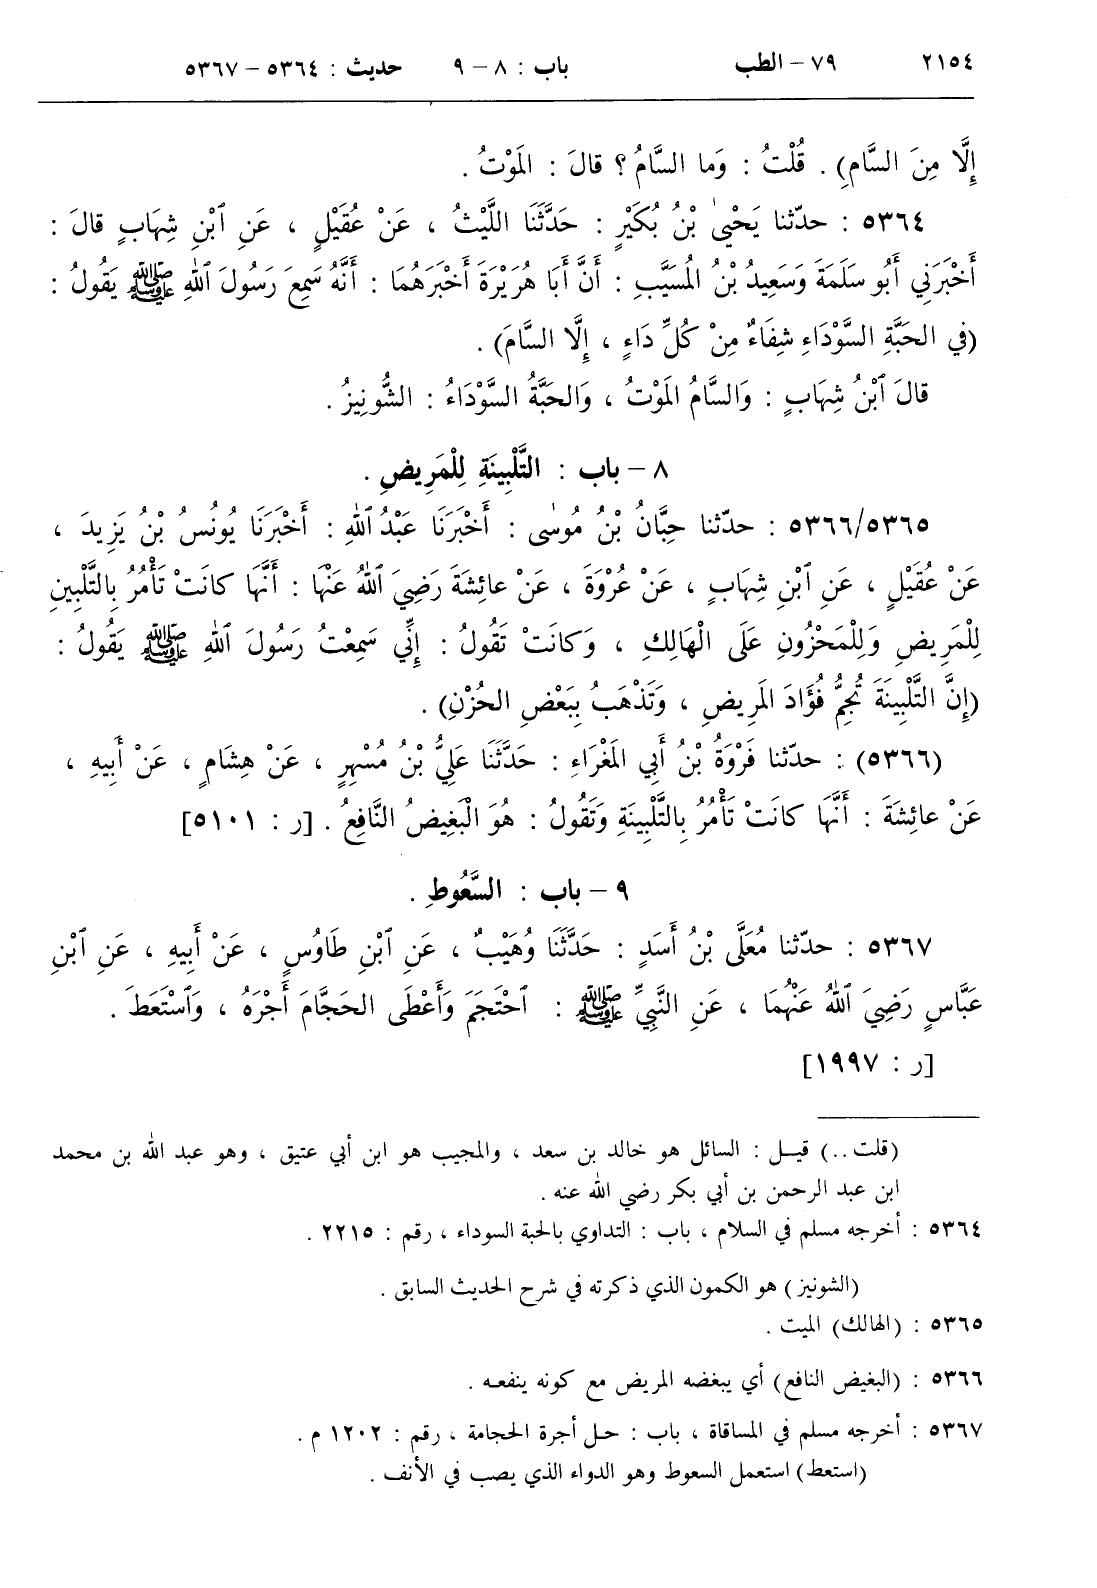 ٢١٥٤ ٧٩ – الطب باب : ٨ – ٩ حديث : ٥٣٦٤ – ٥٣٦٧
إِلَّا مِنَ السَّامِ) . قُلْتُ : وَما السَّامُ ؟ قالَ : المَوْتُ .
٥٣٦٤ : حدّثنا يَحْيىٰ بْنُ بُكَيْرٍ : حَدَّثَنَا اللَّيْثُ ، عَنْ عُقَيْلٍ ، عَنِ ٱبْنِ شِهَابٍ قالَ :
أَخْبَرَنِي أَبُو سَلَمَةَ وَسَعِيدُ بْنُ المُسَيَّبِ : أَنَّ أَبَا هُرَيْرَةَ أَخْبَرَهُمَا : أَنَّهُ سَمِعَ رَسُولَ ٱللهِ ﷺ يَقُولُ :
(في الحَبَّةِ السَّوْدَاءِ شِفَاءٌ مِنْ كُلِّ دَاءٍ ، إِلَّا السَّامَ) .
قالَ ٱبْنُ شِهَابٍ : وَالسَّامُ المَوْتُ ، وَالحَبَّةُ السَّوْدَاءُ : الشُّونِيزُ .
٨ – باب : التَّلْبِينَةِ لِلْمَرِيضِ .
٥٣٦٦/٥٣٦٥ : حدّثنا حِبَّانُ بْنُ مُوسٰى : أَخْبَرَنَا عَبْدُ ٱللهِ : أَخْبَرَنَا يُونُسُ بْنُ يَزِيدَ ،
عَنْ عُقَيْلٍ ، عَنِ ٱبْنِ شِهَابٍ ، عَنْ عُرْوَةَ ، عَنْ عائِشَةَ رَضِيَ ٱللهُ عَنْهَا : أَنَّهَا كانَتْ تَأْمُرُ بِالتَّلْبِينِ
لِلْمَرِيضِ وَلِلْمَحْزُونِ عَلَى الْهَالِكِ ، وَكانَتْ تَقُولُ : إِنِّي سَمِعْتُ رَسُولَ ٱللهِ ﷺ يَقُولُ :
(إِنَّ التَّلْبِينَةَ تُجِمُّ فُؤَادَ المَرِيضِ ، وَتَذْهَبُ بِبَعْضِ الحُزْنِ) .
(٥٣٦٦) : حدّثنا فَرْوَةُ بْنُ أَبِي المَغْرَاءِ : حَدَّثَنَا عَلِيُّ بْنُ مُسْهِرٍ ، عَنْ هِشَامٍ ، عَنْ أَبِيهِ ،
عَنْ عائِشَةَ : أَنَّهَا كانَتْ تَأْمُرُ بِالتَّلْبِينَةِ وَتَقُولُ : هُوَ الْبَغِيضُ النَّافِعُ . [ر : ٥١٠١]
٩ – باب : السَّعُوطِ .
٥٣٦٧ : حدّثنا مُعَلَّى بْنُ أَسَدٍ : حَدَّثَنَا وُهَيْبٌ ، عَنِ ٱبْنِ طَاوُسٍ ، عَنْ أَبِيهِ ، عَنِ ٱبْنِ
عَبَّاسٍ رَضِيَ ٱللهُ عَنْهُمَا ، عَنِ النَّبِيِّ ﷺ : ٱحْتَجَمَ وَأَعْطَى الحَجَّامَ أَجْرَهُ ، وَٱسْتَعَطَ .
[ر : ١٩٩٧]
(قلت ..) قيـل : السائل هو خالد بن سعد ، والمجيب هو ابن أبي عتيق ، وهو عبد الله بن محمد
ابن عبد الرحمن بن أبي بكر رضي الله عنه .
٥٣٦٤ : أخرجه مسلم في السلام ، باب : التداوي بالحبة السوداء ، رقم : ٢٢١٥ .
(الشونيز) هو الكمون الذي ذكرته في شرح الحديث السابق .
٥٣٦٥ : (الهالك) الميت .
٥٣٦٦ : (البغيض النافع) أي يبغضه المريض مع كونه ينفعـه .
٥٣٦٧ : أخرجه مسلم في المساقاة ، باب : حـل أجرة الحجامة ، رقم : ١٢٠٢ م .
(استعط) استعمل السعوط وهو الدواء الذي يصب في الأنف .